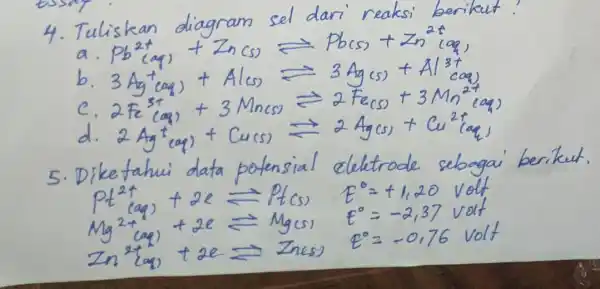 Essay
4. Tuliskan diagram sel dari reaksi berikut !
a. Pb²⁺(aq) + Zn(s) ⇌ Pb(s) + Zn²⁺(aq)
b. 3 Ag⁺(aq) + Al(s) ⇌ 3 Ag(s) + Al³⁺(aq)
c. 2 Fe³⁺(aq) + 3 Mn(s) ⇌ 2 Fe(s) + 3 Mn²⁺(aq)
d. 2 Ag⁺(aq) + Cu(s) ⇌ 2 Ag(s) + Cu²⁺(aq)
5. Diketahui data potensial elektrode sebagai berikut.
Pt²⁺(aq) + 2e ⇌ Pt(s) E° = +1,20 Volt
Mg²⁺(aq) + 2e ⇌ Mg(s) E° = -2,37 Volt
Zn²⁺(aq) + 2e ⇌ Zn(s) E° = -0,76 Volt